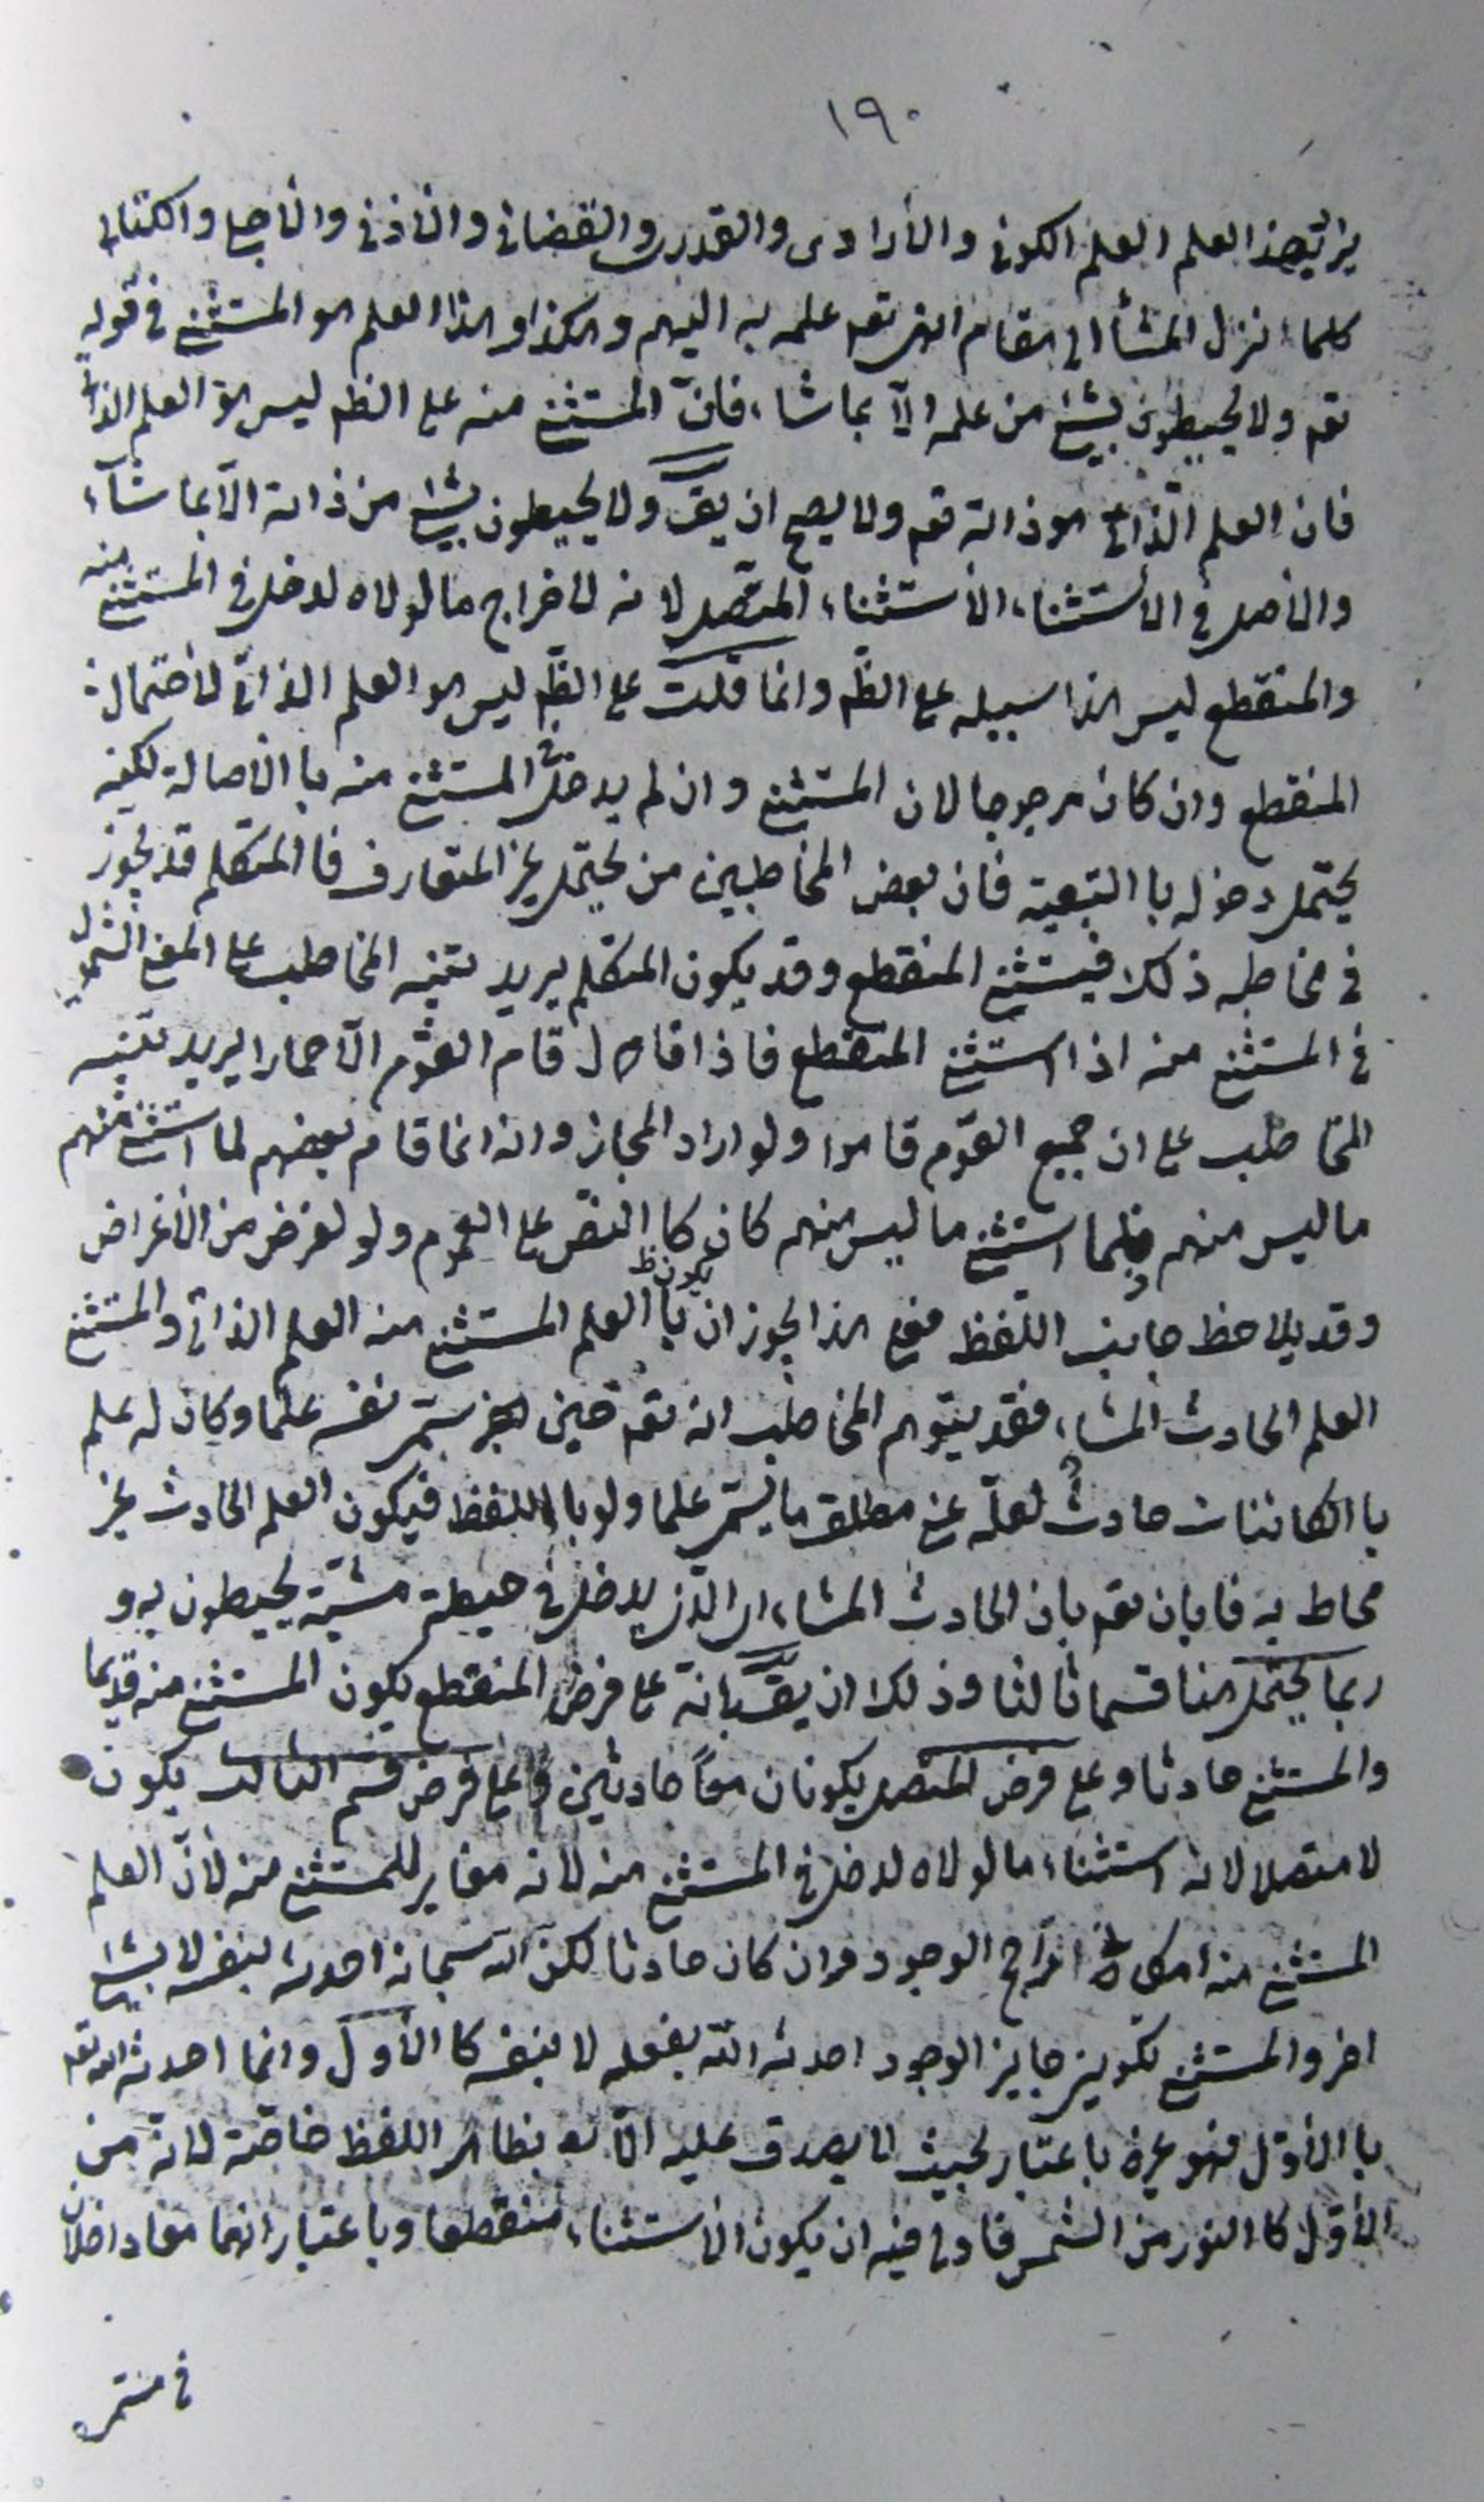 ١٩٠
العلم العلم الكونى والارادى والقدرى والقضائى والاذنى والاجلى والكتابى
كلما نزل المشأ الى مقام انتهى تعم علمه به اليهم وهكذا وهذا العلم هو المستثنى فى قوله
تعم ولا يحيطون بشئ من علمه الّا بما شاء، فانّ المستثنى منه على الظم ليس هو العلم الذاتى
فان العلم الذاتى هو ذاته تعم ولا يصح ان يقّ ولا يحيطون بشئ من ذاته الّا بما شآء،
والاصل فى الاستثناء، الاستثناء، المتصل لانه لاخراج ما لولاه لدخل فى المستثنى منه
والمنقطع ليس هذا سبيله على الظّم وانما قلت على الظّم ليس هو العلم الذاتى لاحتمال
المنقطع وان كان مرجوحا لان المستثنى وان لم يدخل فى المستثنى منه با الاصالة لكنه
يحتمل دخوله با التبعية فان بعض المخاطبين من يحتمل غير المتعارف فا المتكلم قد يجوز
فى مخاطبه ذلك فيستثنى المنقطع وقد يكون المتكلم يريد تنبيه المخاطب على المعنى الشمول
فى المستثنى منه اذا استثنى المنقطع فاذا قال قام القوم الّا حمارا يريد تنبيه
المخاطب على ان جميع القوم قاموا ولو اراد المجاز وانه انما قام بعضهم لما استثنى منهم
ما ليس منهم فلما استثنى ما ليس منهم كان كا النص على العموم ولو لغرض من الاغراض
وقد يلاحظ جانب اللفظ فعلى هذا يجوز ان يكون ظ با العلم المستثنى منه العلم الذاتى والمستثنى
العلم الحادث المشاء، فقد يتوهم المخاطب انه تعم حين سمّى نفسه علما وكان له علم
با الكائنات حادث لعلّه عنى مطلق ما يسمّى علما ولو با اللفظ فيكون العلم الحادث غير
محاط به فابان تعم بان الحادث المشاء، اى الذى يدخل فى حيطة مشيّة يحيطون به و
ربما يحتمل هنا قسما ثالثا وذلك ان يقّ بانه على فرض المنقطع يكون المستثنى منه قديما
والمستثنى حادثا وعلى فرض المتصل يكونان معًا حادثين وعلى فرض قسم الثالث يكون
لا متصلا لانه استثناء، ما لولاه لدخل فى المستثنى منه لانه مغاير للمستثنى منه لانّ العلم
المستثنى منه الوجود وان كان حادثا لكن الله سبحانه احدثه بنفسه لا بشئ
اخر والمستثنى تكوينى جايز الوجود احدثه الله بفعله لا بنفسه كا الاول وانما احدثه الله تعم
با الاوّل فهو غيره باعتبار بحيث لا يصدق عليه الّا بظاهر اللفظ خاصّة لانه من
الاوّل كا النور من الشمس فاولى فيه ان يكون الاستثناء، منقطعا وباعتبار انهما معا داخلان
فى مسمّى